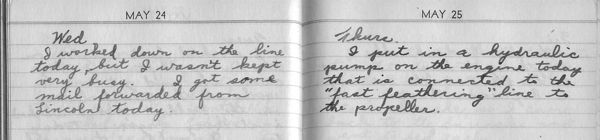 MAY 24
Wed
I worked down on the line
today, but I wasn't kept
very busy. I got some
mail forwarded from
Lincoln today.
MAY 25
Thurs.
I put in a hydraulic
pump on the engine today
that is connected to the
"fast feathering" line to
the propeller.